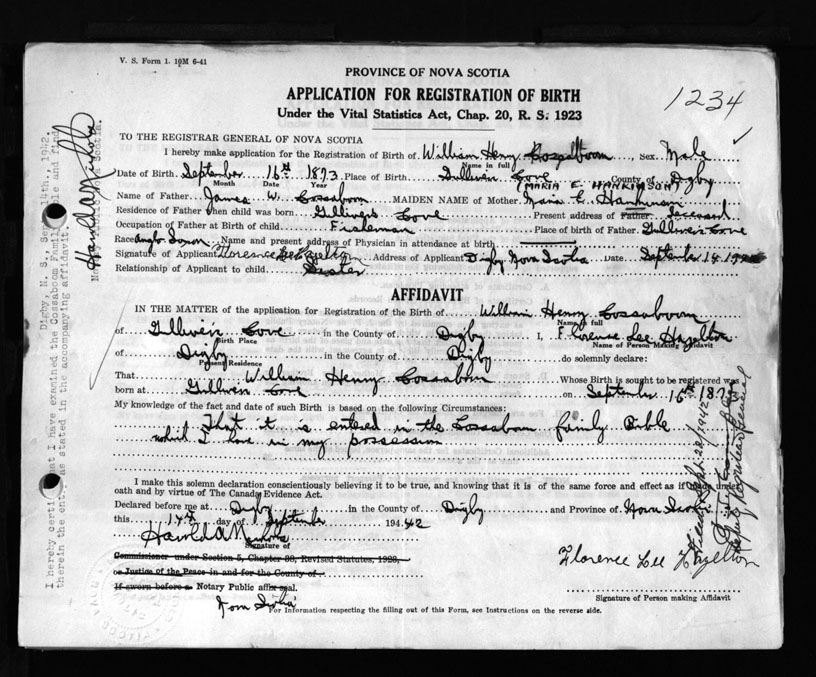 V. S. Form 1. 10M 6-41
1234
PROVINCE OF NOVA SCOTIA
APPLICATION FOR REGISTRATION OF BIRTH
Under the Vital Statistics Act, Chap. 20, R. S. 1923
TO THE REGISTRAR GENERAL OF NOVA SCOTIA
I hereby make application for the Registration of Birth of William Henry Cossaboom Sex Male
Name in full
Date of Birth. September 16th 1873. Place of Birth Gulliver Cove County of Digby
Month Date Year
(MARIA E. HANKINSON)
Name of Father James W. Cossaboom MAIDEN NAME of Mother. Maria E. Hankinson
Residence of Father when child was born Gullivers Cove Present address of Father. Deceased
Occupation of Father at Birth of child Fisherman Place of birth of Father. Gullivers Cove
Race Anglo Saxon Name and present address of Physician in attendance at birth
Signature of Applicant Florence Lee Hazelton Address of Applicant Digby Nova Scotia Date September 14. 19
Relationship of Applicant to child Sister
AFFIDAVIT
IN THE MATTER of the application for Registration of the Birth of William Henry Cossaboom
Name in full
of Gulliver's Cove in the County of Digby I, Florence Lee Hazelton
Birth Place Name of Person Making Affidavit
of Digby in the County of Digby do solemnly declare:
Present Residence
That William Henry Cossaboom Whose Birth is sought to be registered was
born at Gullivers Cove on September 16th 1873
My knowledge of the fact and date of such Birth is based on the following Circumstances:
That it is entered in the Cossaboom family Bible
which I have in my possession
I make this solemn declaration conscientiously believing it to be true, and knowing that it is of the same force and effect as if made under
oath and by virtue of The Canada Evidence Act.
Declared before me at Digby in the County of Digby and Province of Nova Scotia
this 14th day of September 1942
Harold A Nichols
Signature of
Commissioner under Section 5, Chapter 38, Revised Statutes, 1923,
or Justice of the Peace in and for the County of
If sworn before a Notary Public affix seal.
Nova Scotia
Florence Lee Hazelton
Signature of Person making Affidavit
For Information respecting the filling out of this Form, see Instructions on the reverse side.
Digby, N. S., Sept. 14th., 1942.
I hereby certify that I have examined the Cossaboom Family Bible and find
therein the entry as stated in the accompanying affidavit
Harold A Nichols
Sept. 22/1942
Deputy Registrar General